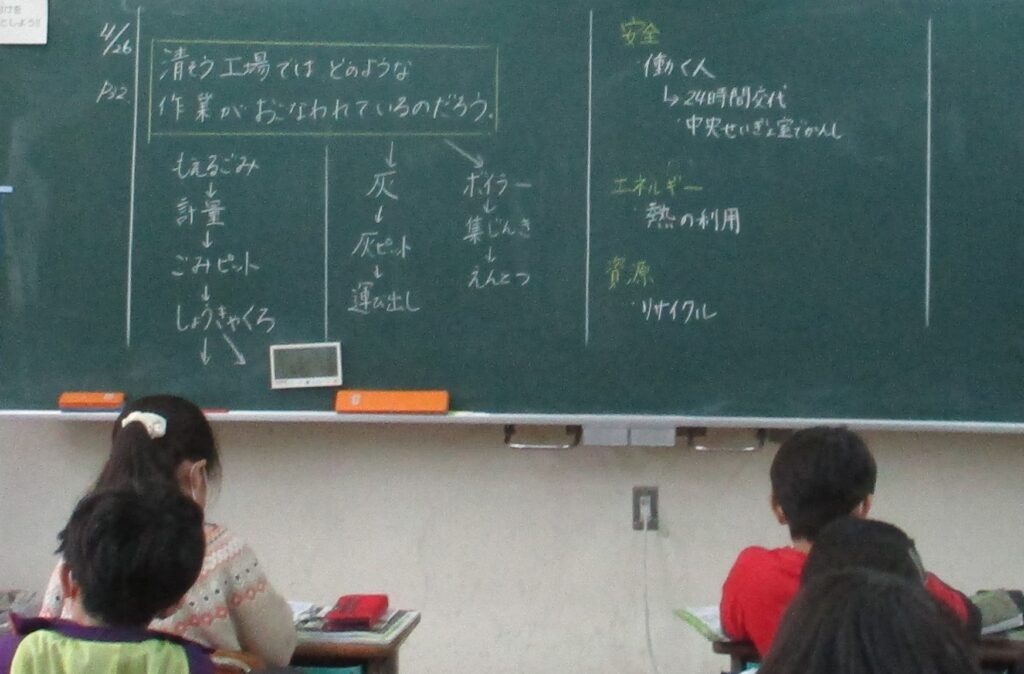 4/26
P32
清そう工場では どのような
作業が おこなわれているのだろう。
もえるごみ
↓
計量
↓
ごみピット
↓
しょうきゃくろ
↓ ↘
↓ ↘
灰
↓
灰ピット
↓
運び出し
ボイラー
↓
集じんき
↓
えんとつ
安全
・働く人
↳ 24時間交代
・中央せいぎょ室でかんし
エネルギー
・熱の利用
資源
・リサイクル